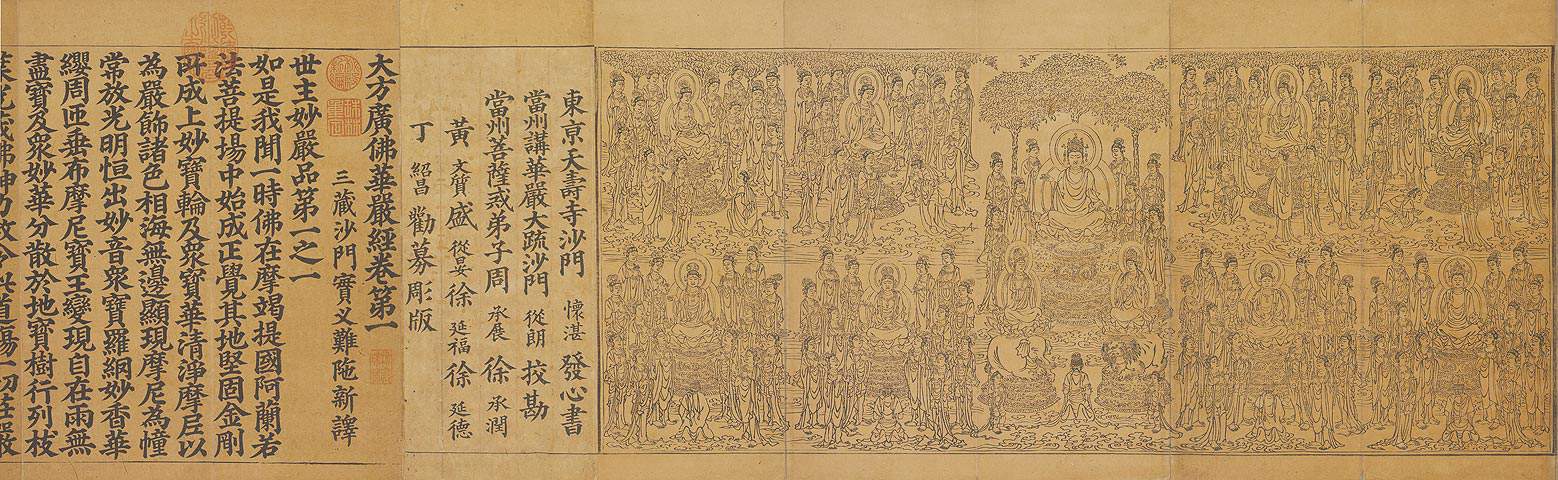 東京天壽寺沙門 懷湛 發心書
當州講華嚴大疏沙門 從朗 挍勘
當州菩薩戒弟子周 承展 徐 承潤
黃 文質 盛 從晏 徐 延福 徐 延德
丁 紹昌 勸募彫版
大方廣佛華嚴經卷第一
三藏沙門實叉難陁新譯
世主妙嚴品第一之一
如是我聞一時佛在摩竭提國阿蘭若
法菩提場中始成正覺其地堅固金剛
所成上妙寶輪及衆寶華清淨摩尼以
為嚴飾諸色相海無邊顯現摩尼為幢
常放光明恒出妙音衆寶羅網妙香華
纓周匝垂布摩尼寶王變現自在雨無
盡寶及衆妙華分散於地寶樹行列枝
葉光茂佛神力故令此道場一切莊嚴